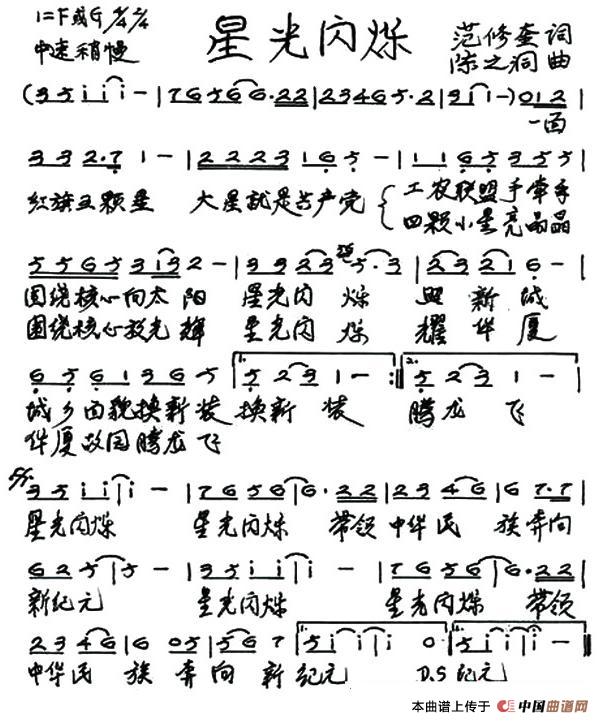 1=F或G 4/4 2/4
星光闪烁
范修奎 词
中速稍慢
陈之洞 曲
(3 5 i i i - | 7 6 5 6 6· 2 2 | 2 3 4 6 5· 2 | 3 i i -) 0 1 2 |
一面
3 3 2· 7 1 - | 2 2 2 2 3 1 6 5 - | 1 1 6 5 3 5 5
红旗五颗星 大星就是共产党 { 工农联盟手牵手
四颗小星亮晶晶
5 5 6 5 3 1 3 2 - | 3 3 2 3 5· 3 | 2 3 2 1 6 - |
围绕核心向太阳 星光闪烁 新城
围绕核心放光辉 星光闪烁 耀华厦
6 5 6 1 3 6 5 | 1. 5 2 3 1 - :|| 2. 5 2 3 1 - |
城乡面貌换新装 换新装 腾龙飞
华厦故园腾龙飞
3 5 i i | i - | 7 6 5 6 | 6· 2 2 | 2 3 4 6 | 6 7· 7 |
星光闪烁 星光闪烁 带领中华民族奔向
6 2 5 | 5 - | 3 5 i i | i - | 7 6 5 6 | 6· 2 2 |
新纪元 星光闪烁 星光闪烁 带领
2 3 4 6 | 6 0 5 | 5 6 7 | 1. 5 i | i 0 | 2. 5 i | i - ||
中华民族奔向新纪元 D.S 纪元
本曲谱上传于 中国曲谱网